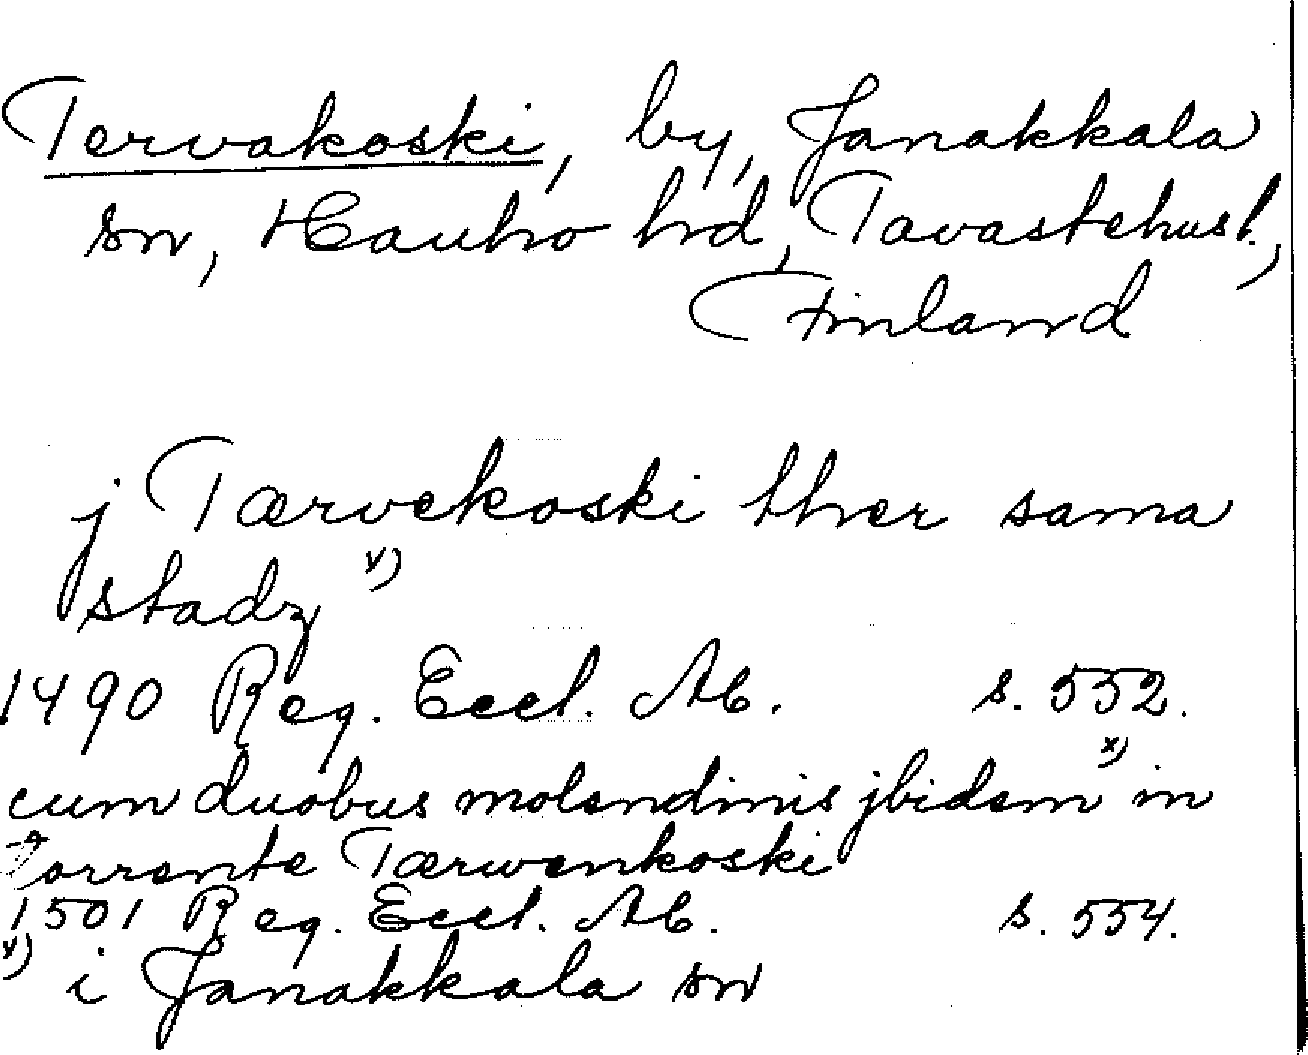 Tervakoski, by, Janakkala
sn, Hauho hrd, Tavastehus l.,
Finland
j Tærvekoski ther sama
stadz x)
1490 Reg. Eccl. Ab. s. 552.
cum duobus molendinis jbidem x) in
Torrente Tærwenkoski
1501 Reg. Eccl. Ab. s. 554.
x) i Janakkala sn